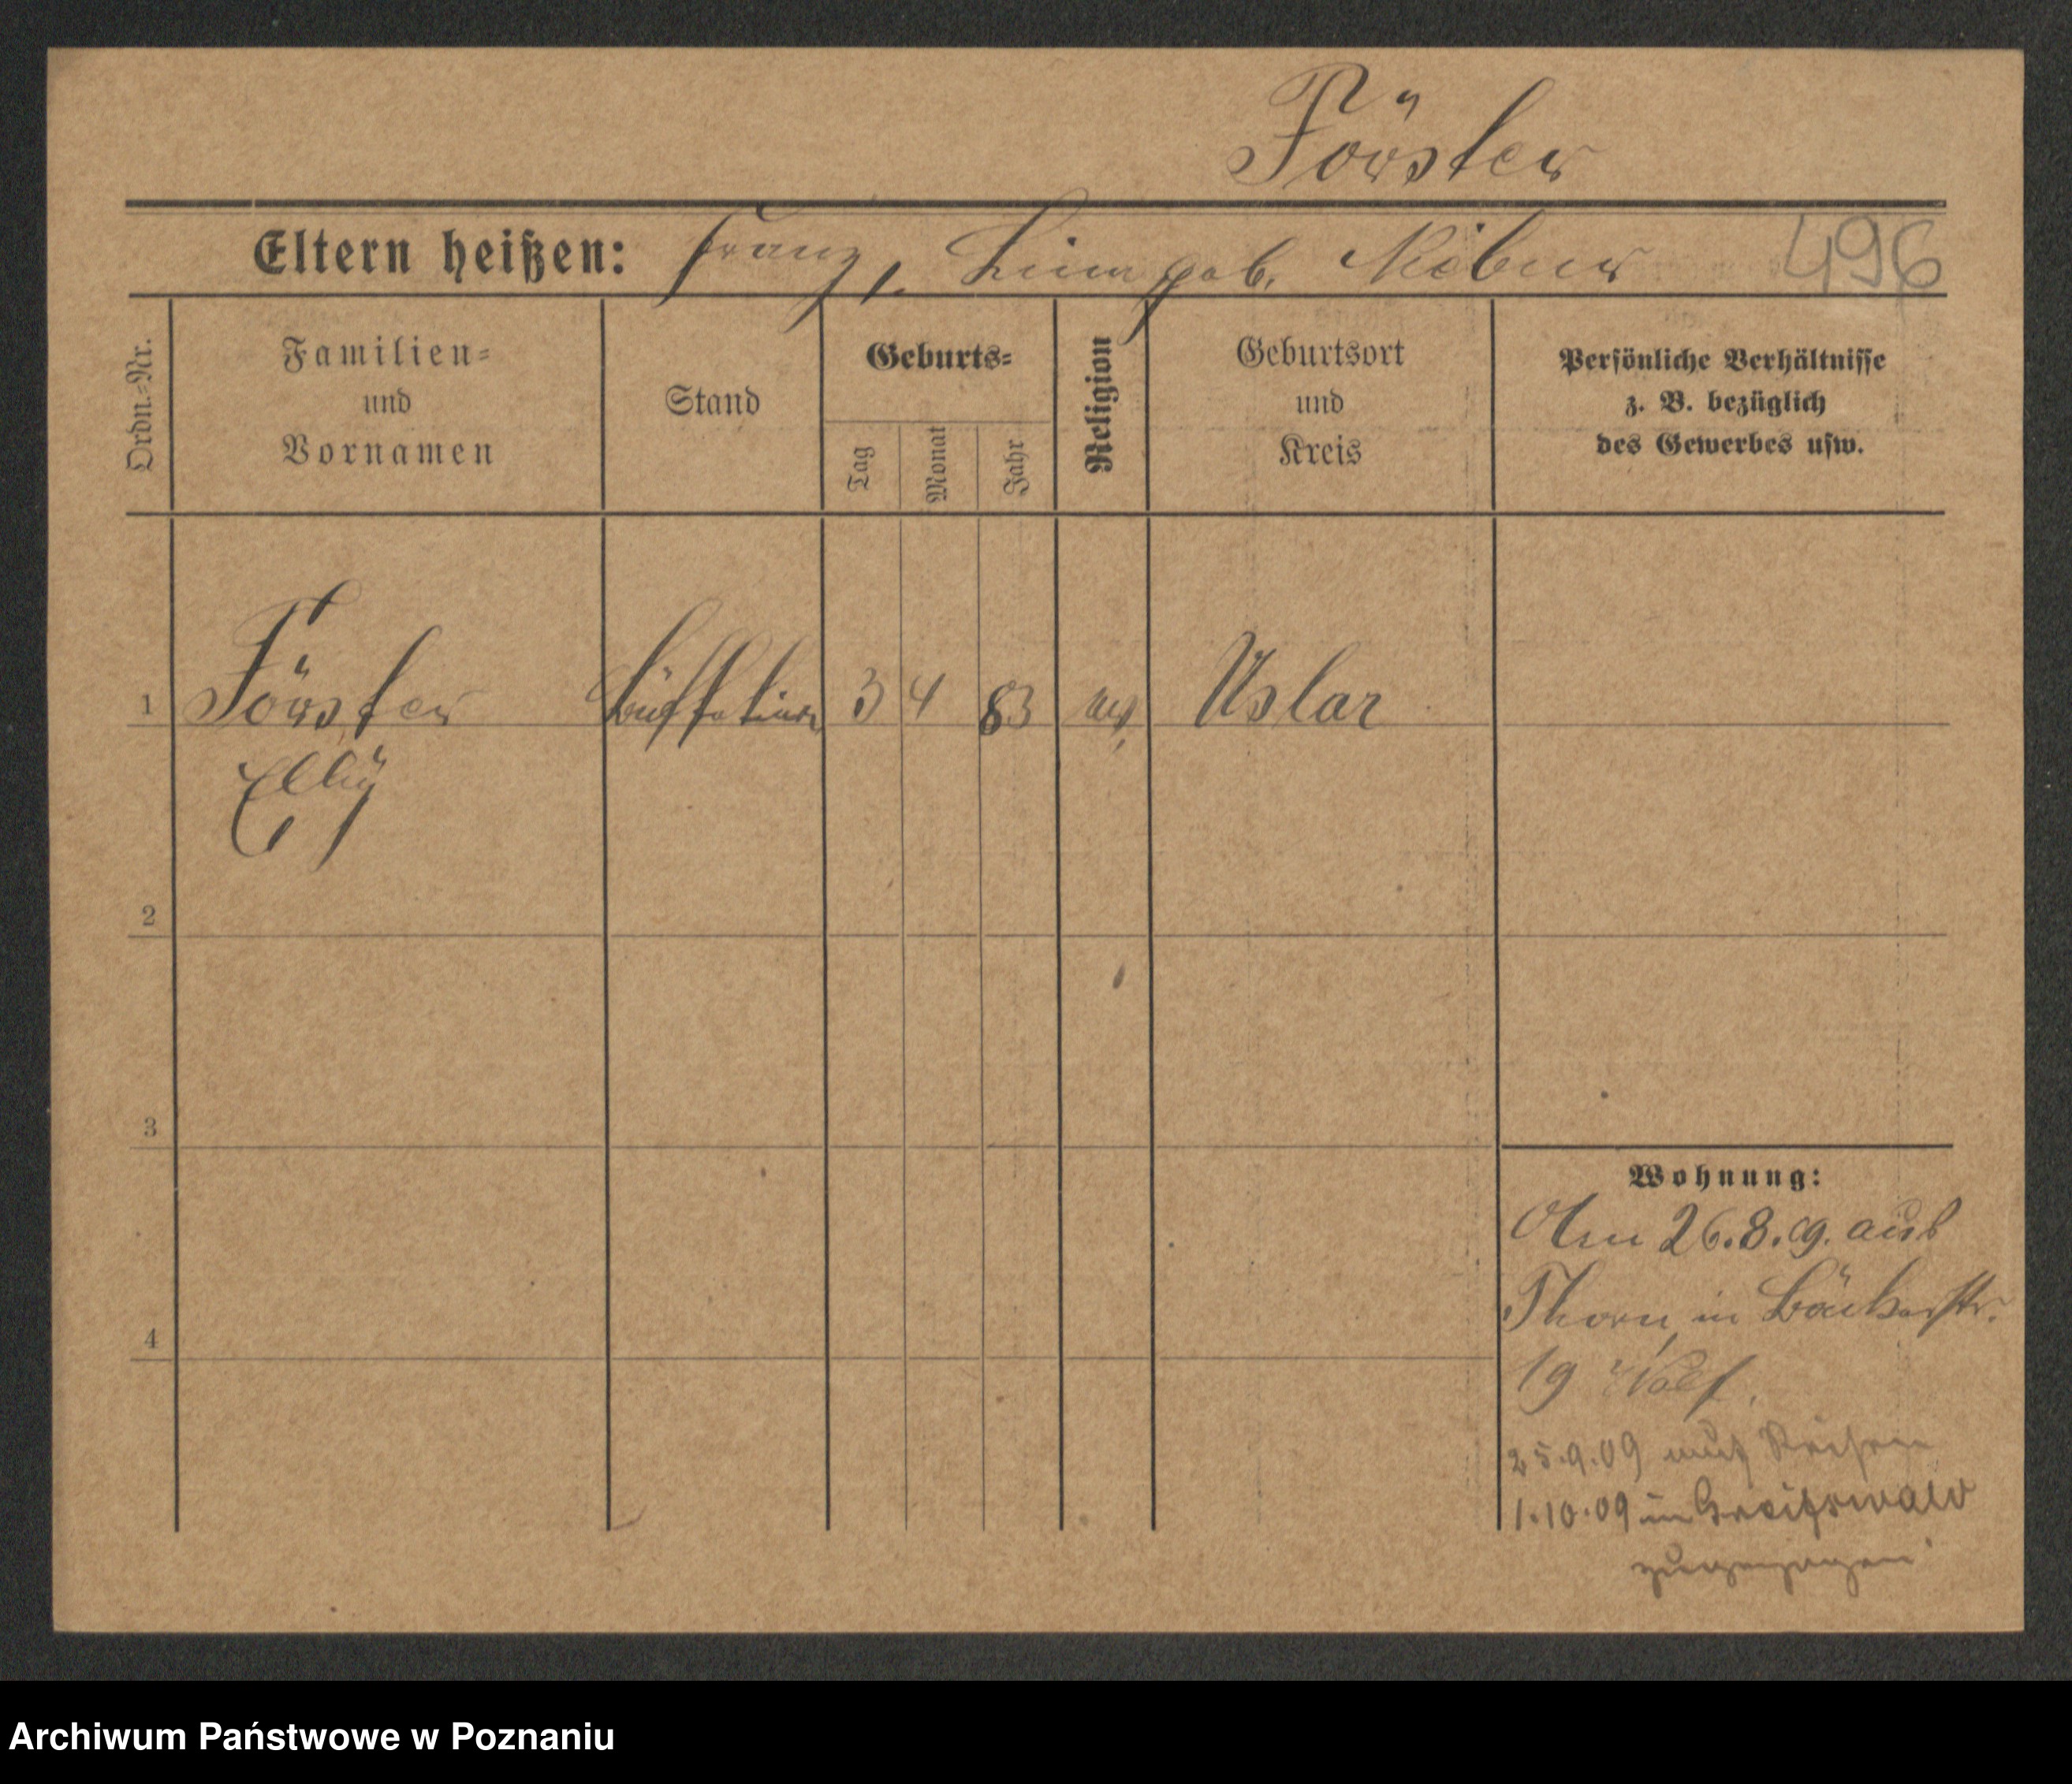 Förster
Eltern heißen: Franz, Lina geb. 496
Ordn.-Nr.
Familien-
und
Vornamen
Stand
Geburts-
Tag
Monat
Jahr
Religion
Geburtsort
und
Kreis
Persönliche Verhältnisse
z. B. bezüglich
des Gewerbes usw.
1 Förster 3 4 83 Uslar
Elly
2
3
4
Wohnung:
Am 26.8.09. aus
Thorn in Bäckerstr.
19 Wolf.
25.9.09 auf Reisen
1.10.09 in Greifswald
zugezogen
Archiwum Państwowe w Poznaniu